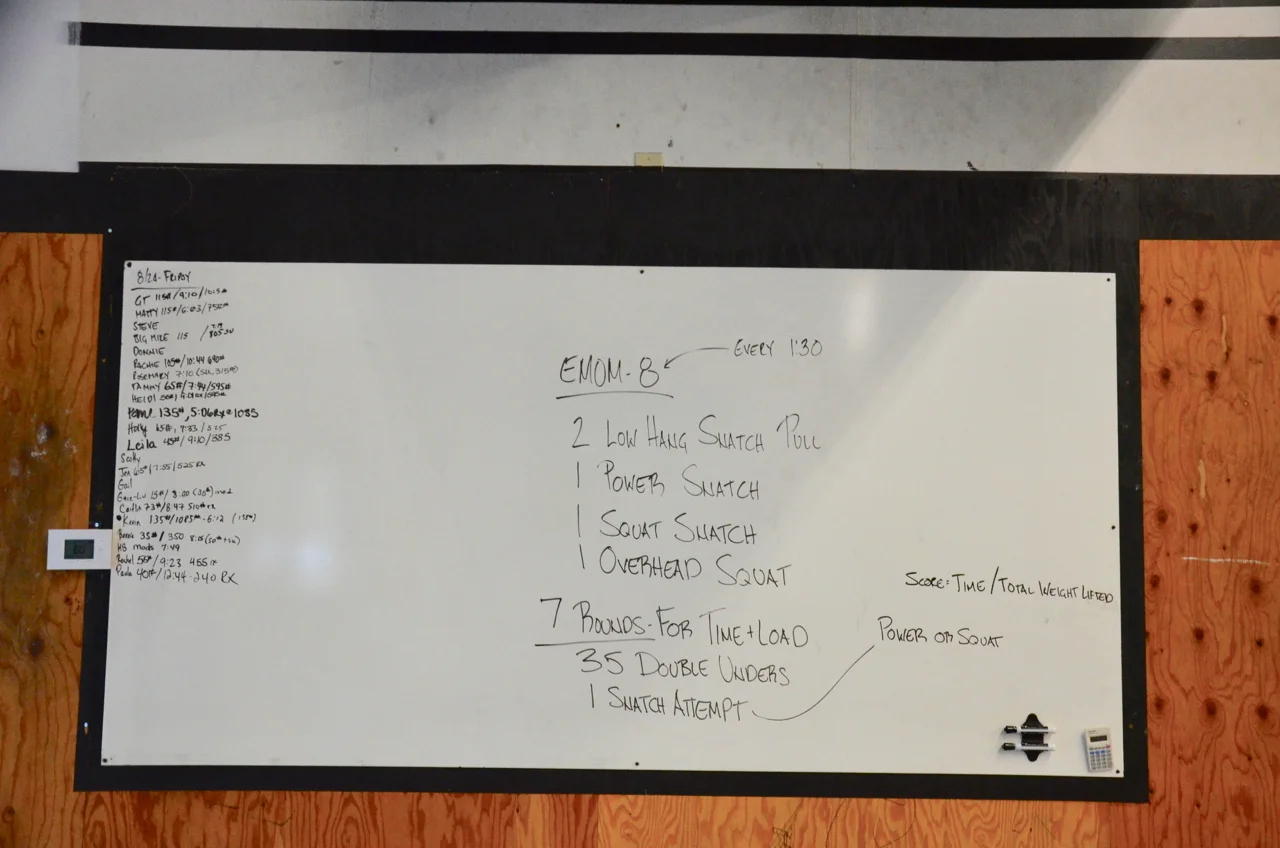 8/24 - FRIDAY
GT 115#/9:10/
MATTY 115#/6:03/
STEVE
BIG MIKE 115 /
DONNIE
RACHIE 105#/10:44 690#
ROSEMARY 7:10
TAMMY 65#/7:44/595#
HEIDI
135#, 5:06 RX @ 1085
Holly 65#, 7:33 /
Leila 45#/9:10/385
Scotty
Jen 65#/7:55/525 RX
Gail
15#/ 8:00
Caitlin 73#/8:47 510# rx
Kevin 135#/1085# - 6:12 (155#)
35#/ 350
HB mods 7:49
Rachel 55#/9:23 455 rx
Paula 40#/12:44 - 240 RX
EVERY 1:30
EMOM - 8
2 LOW HANG SNATCH PULL
1 POWER SNATCH
1 SQUAT SNATCH
1 OVERHEAD SQUAT
SCORE: TIME/TOTAL WEIGHT LIFTED
7 ROUNDS - FOR TIME + LOAD
POWER OR SQUAT
35 DOUBLE UNDERS
1 SNATCH ATTEMPT